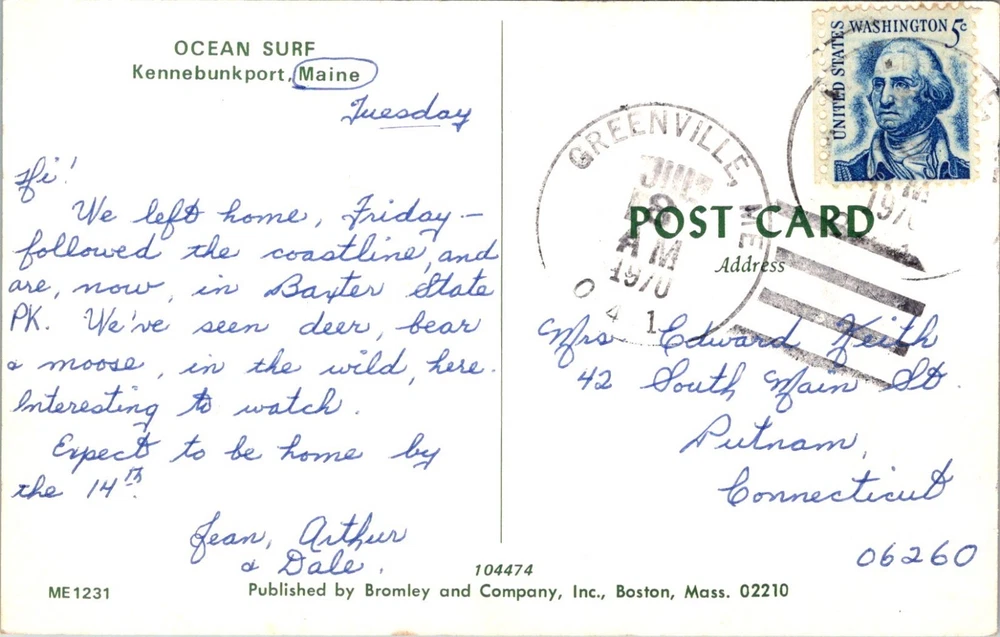 OCEAN SURF
Kennebunkport, Maine
Tuesday
Hi!
We left home, Friday –
followed the coastline, and
are, now, in Baxter State
PK. We've seen deer, bear
& moose, in the wild, here.
Interesting to watch.
Expect to be home by
the 14th.
Jean, Arthur
& Dale.
ME1231
104474
Published by Bromley and Company, Inc., Boston, Mass. 02210
UNITED STATES
WASHINGTON 5c
GREENVILLE, ME
8
AM
1970
041
POST CARD
Address
Mrs Edward Keith
42 South Main St.
Putnam,
Connecticut
06260